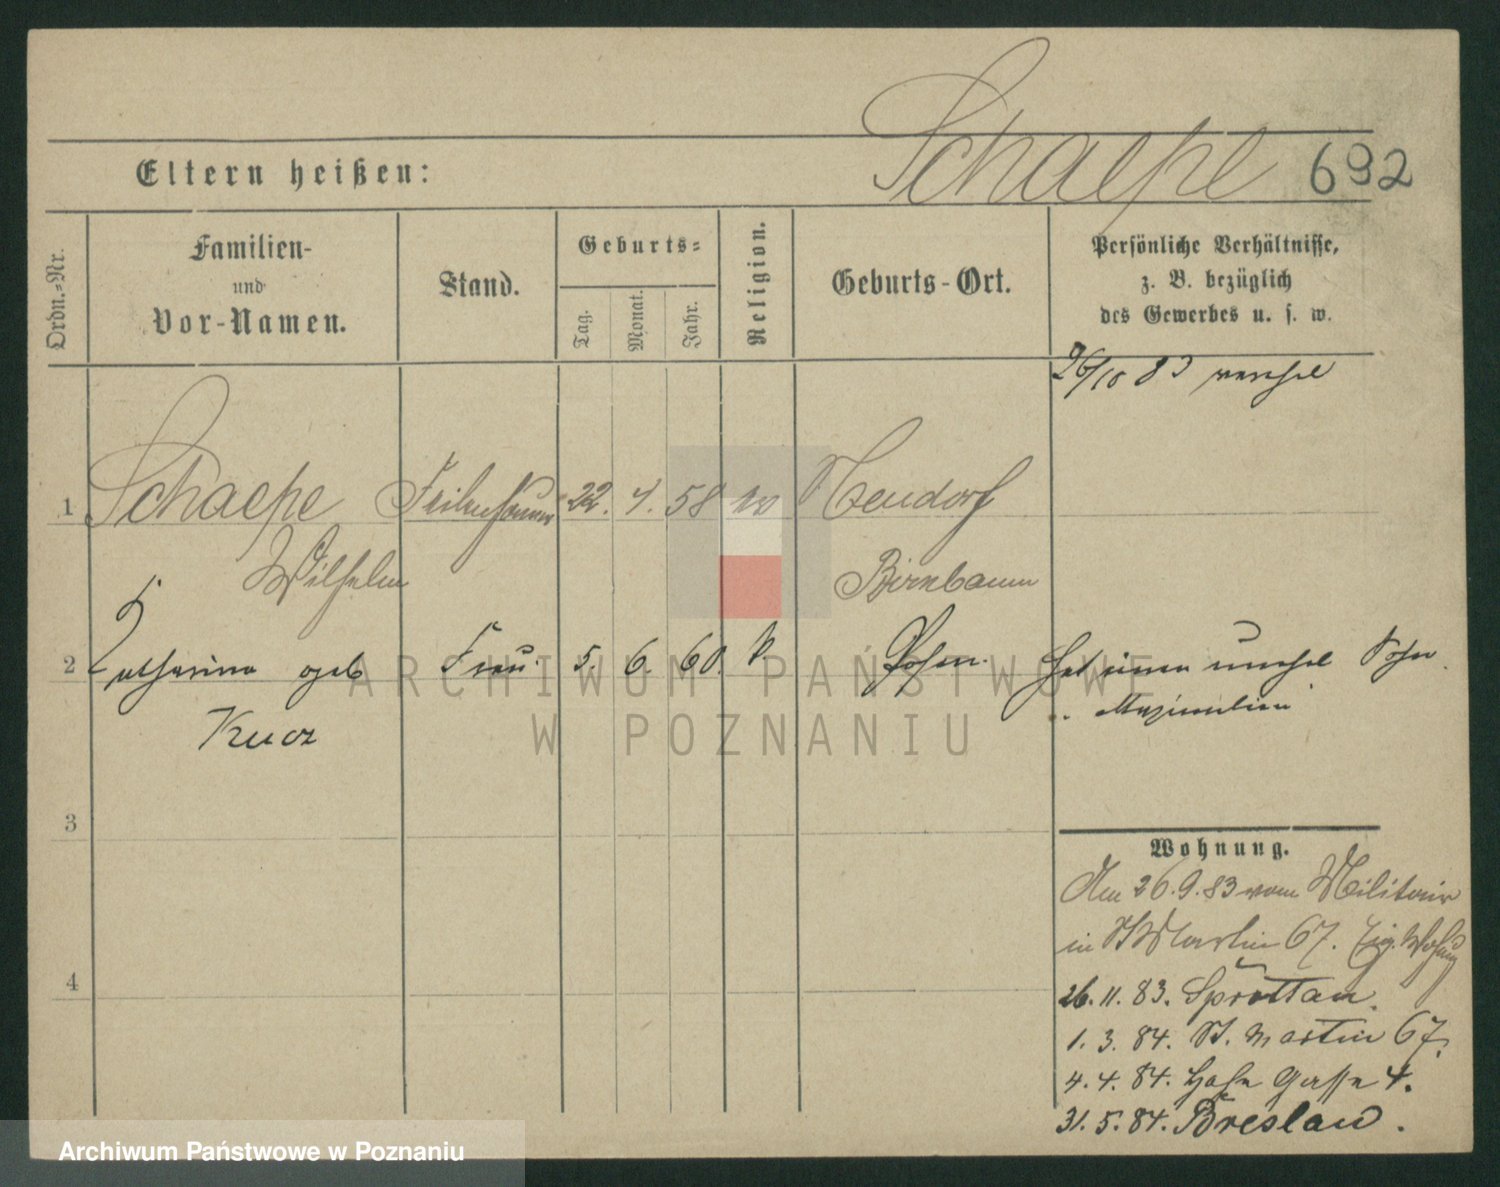 Schaepe 692
Eltern heißen:
Ordn.=Nr.
Familien-
und
Vor-Namen.
Stand.
Geburts=
Tag.
Monat.
Jahr.
Religion.
Geburts-Ort.
Persönliche Verhältnisse,
z. B. bezüglich
des Gewerbes u. s. w.
26/10 83
1 Schaepe Feilenhauer 22. 4. 58 Neudorf
Wilhelm Birnbaum
2 Catharina geb Frau. 5. 6. 60. Posen. Hat einen unehel Sohn
Kucz Maximilian
3
4
Wohnung.
Am 26.9.83 vom Militair
in St Martin 67. Eig. Wohnung
26. 11. 83. Sprottau.
1. 3. 84. St. Martin 67.
4. 4. 84. Hohe Gasse 4.
31. 5. 84. Breslau.
ARCHIWUM PAŃSTWOWE
W POZNANIU
Archiwum Państwowe w Poznaniu